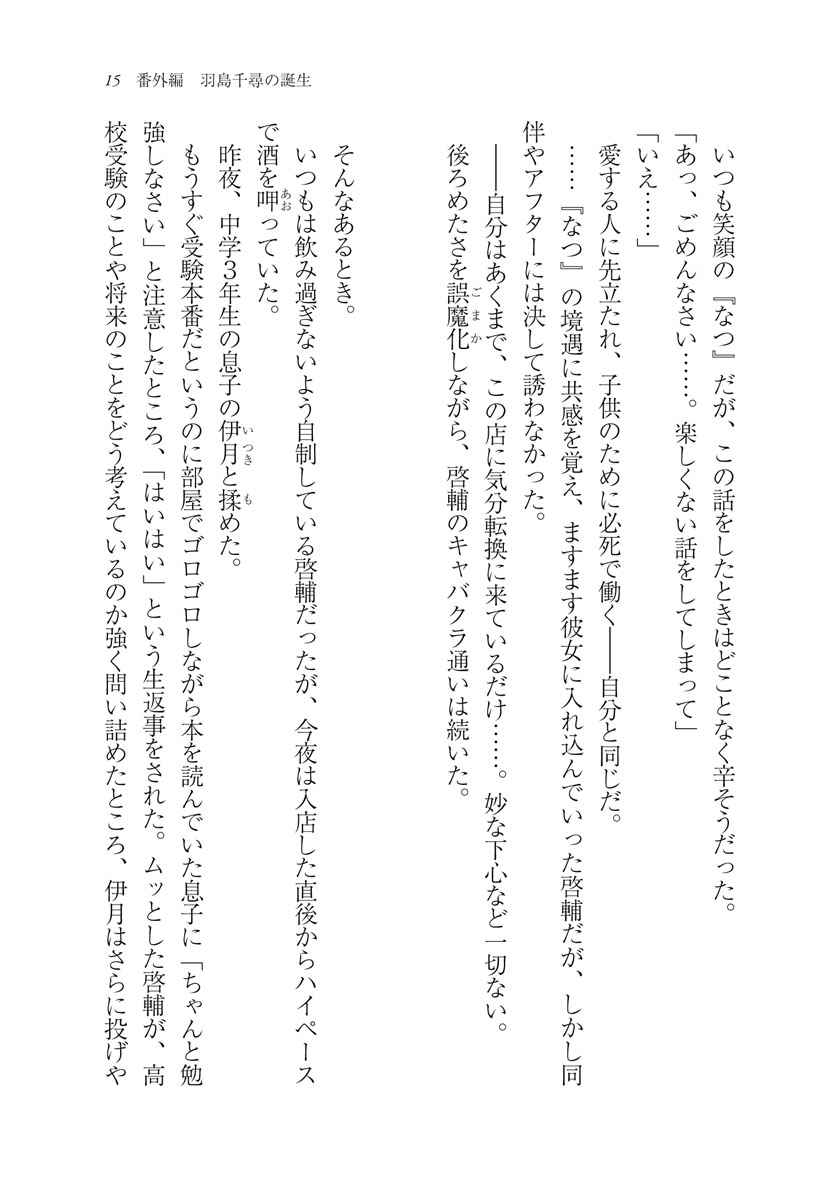 15　番外編　羽島千尋の誕生
　いつも笑顔の『なつ』だが、この話をしたときはどことなく辛そうだった。
「あっ、ごめんなさい……。楽しくない話をしてしまって」
「いえ……」
　愛する人に先立たれ、子供のために必死で働く――自分と同じだ。
　……『なつ』の境遇に共感を覚え、ますます彼女に入れ込んでいった啓輔だが、しかし同
伴やアフターには決して誘わなかった。
　――自分はあくまで、この店に気分転換に来ているだけ……。妙な下心など一切ない。
　後ろめたさを誤魔化しながら、啓輔のキャバクラ通いは続いた。
　そんなあるとき。
　いつもは飲み過ぎないよう自制している啓輔だったが、今夜は入店した直後からハイペース
で酒を呷っていた。
　昨夜、中学３年生の息子の伊月と揉めた。
　もうすぐ受験本番だというのに部屋でゴロゴロしながら本を読んでいた息子に「ちゃんと勉
強しなさい」と注意したところ、「はいはい」という生返事をされた。ムッとした啓輔が、高
校受験のことや将来のことをどう考えているのか強く問い詰めたところ、伊月はさらに投げや